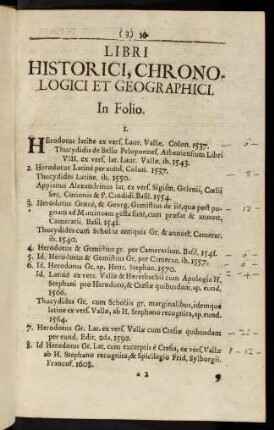 (3)
LIBRI
HISTORICI, CHRONO-
LOGICI ET GEOGRAPHICI.
In Folio.
1.
HErodotus latine ex vers. Laur. Vallæ. Colon. 1537. - 6 -
Thucydides de Bello Peloponnes. Atheniensium Libri
VIII. ex vers. lat. Laur. Vallæ, ib. 1543.
2. Herodotus Latine per eund. Colon. 1537.
Thucydides Latine. ib. 1550.
Appianus Alexandrinus lat. ex vers. Sigism. Gelenii, Cœlii
Sec. Curionis & P. Candidi. Basil. 1554.
3. Herodotus Græcè, & Georg. Gemistus de iis, quæ post pu-
gnam ad Mantineam gesta sunt, cum præfat & annott,
Camerarii. Basil. 1541.
Thucydides cum Scholiis antiquis Gr. & annott. Camerar.
ib. 1540.
4. Herodotus & Gemistus gr. per Camerarium. Basil. 1541.
5. Id. Herodotus & Gemistus Gr. per Camerar. ib. 1557.
6. Id. Herodotus Gr, ap. Henr. Stephan. 1570.
Id. Latinè ex vers. Vallæ & Heresbachii cum Apologia H,
Stephani pro Herodoto, & Ctesiæ quibusdam, ap. eund.
1566.
Thucydides Gr. cum Scholiis gr. marginalibus, idemque
latine ex vers. Vallæ, ab H. Stephano recognita, ap. eund.
1564.
7. Herodotus Gr. Lat. ex vers. Vallæ cum Ctesiæ quibusdam
per eund. Edit. 2da. 1592.
8. Id Herodotus Gr. Lat. cum excerptis è Ctesia, ex vers. Vallæ
ab H. Stephano recognita, & Spicilegio Frid. Sylburgii.
Francof. 1608.
a 2
9